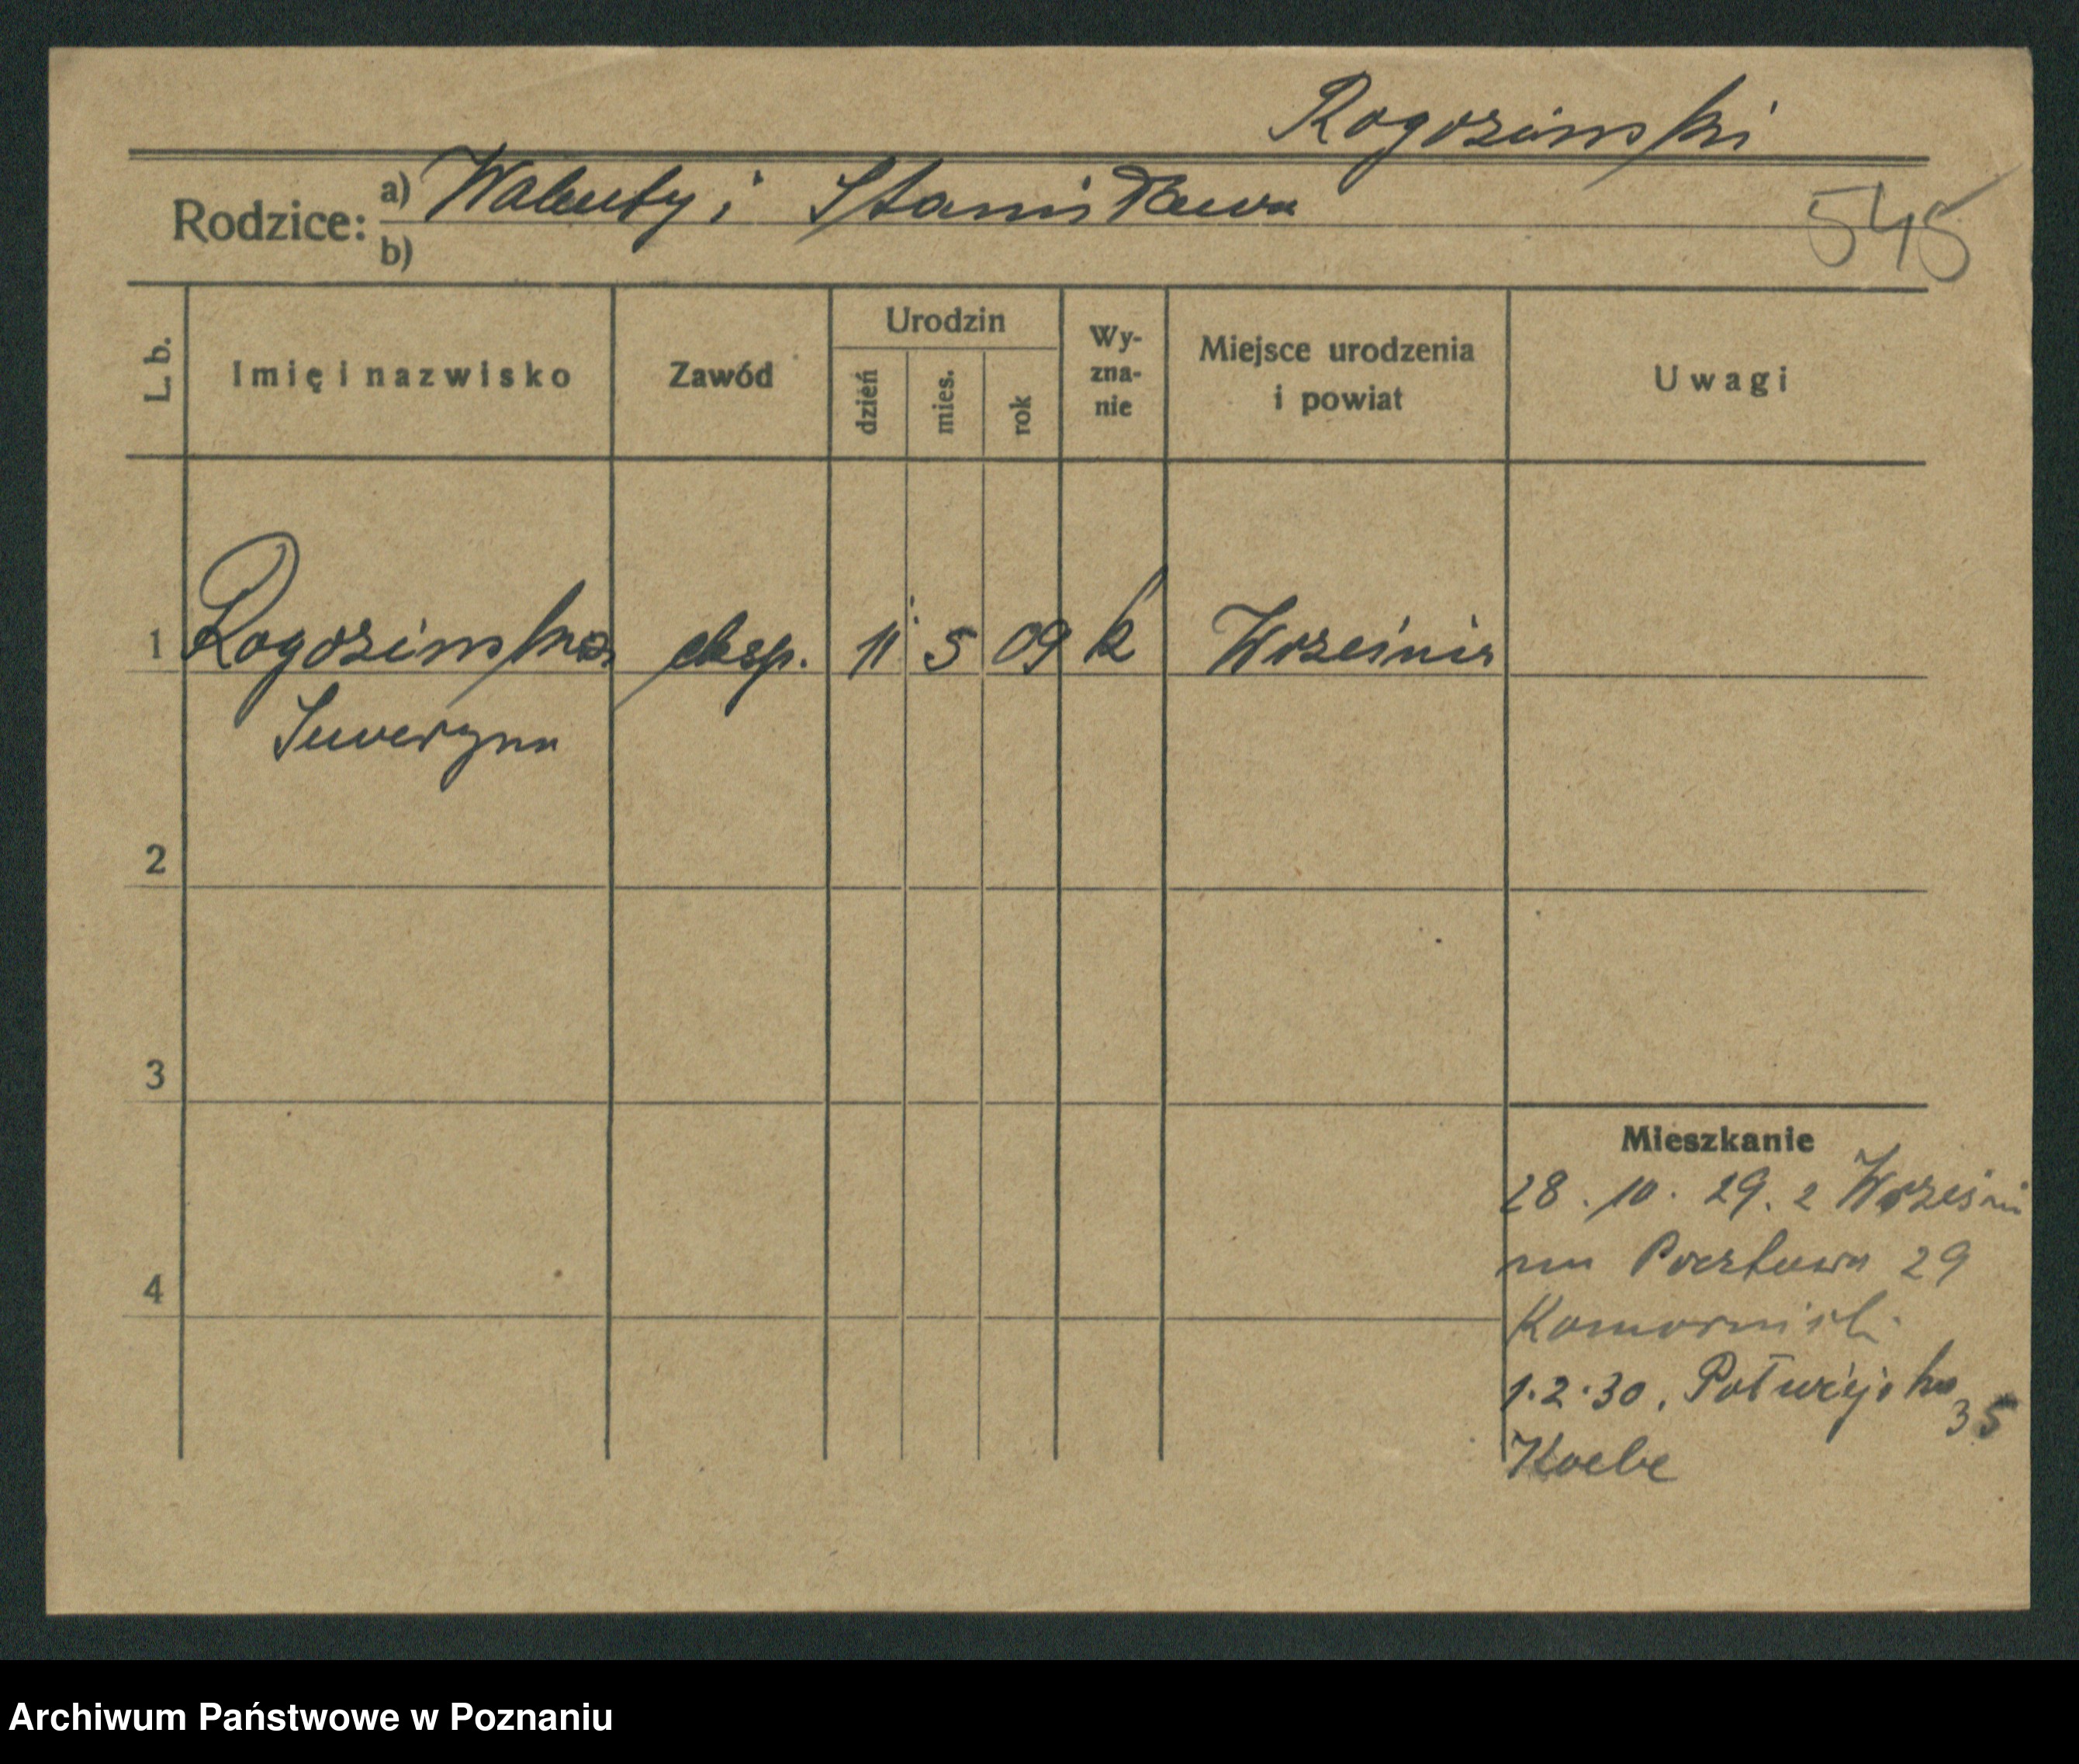 Rogozinski
Rodzice: a) Walenty i Stanisława
b)
545
L. b.
Imię i nazwisko
Zawód
Urodzin
dzień
mies.
rok
Wy-
zna-
nie
Miejsce urodzenia
i powiat
Uwagi
1 Rogozinska eksp. 11 5 09 k Września
Seweryna
2
3
4
Mieszkanie
28. 10. 29. z Wrześni
na Pocztowa 29
1.2.30. Półwiejska 35
Archiwum Państwowe w Poznaniu